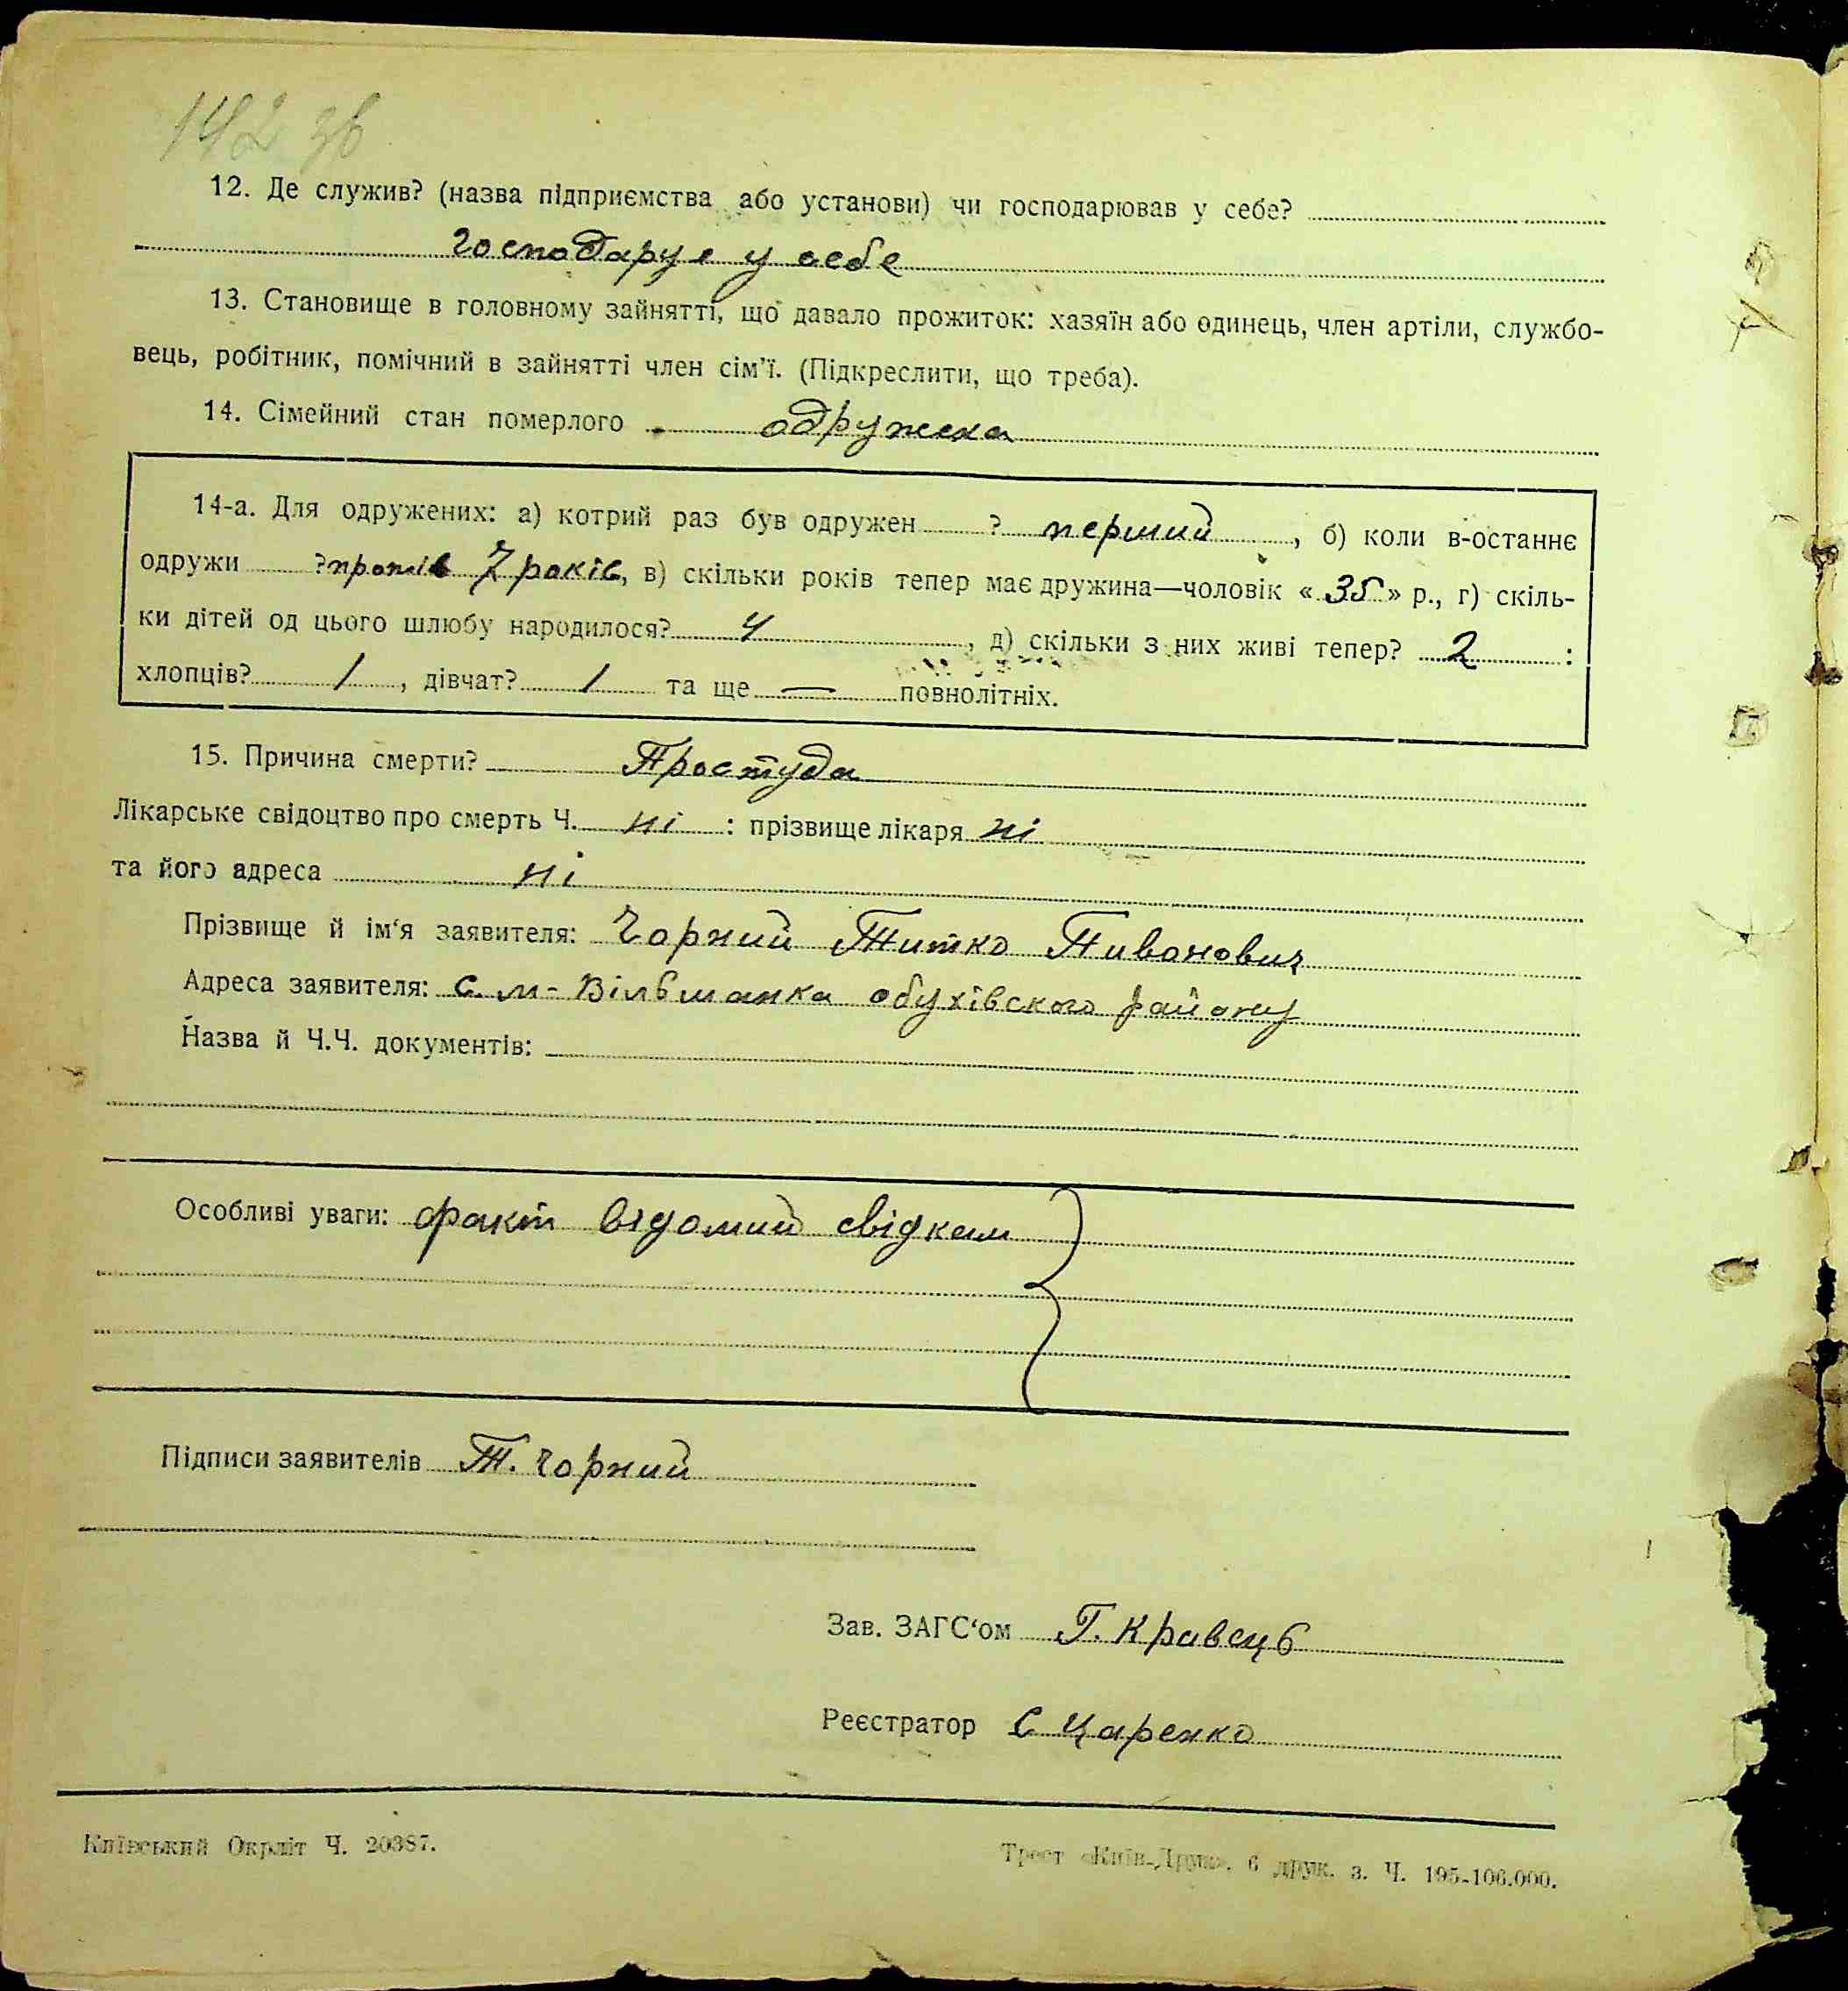 142 зв
12. Де служив? (назва підприємства або установи) чи господарював у себе?
господарує у себе
13. Становище в головному зайнятті, що давало прожиток: хазяїн або одинець, член артіли, службо-
вець, робітник, помічний в зайнятті член сім’ї. (Підкреслити, що треба).
14. Сімейний стан померлого одружена
14-а. Для одружених: а) котрий раз був одружен ? перший, б) коли в-останнє
одружи ? 7 років, в) скільки років тепер має дружина—чоловік «35» р., г) скіль-
ки дітей од цього шлюбу народилося? 4, д) скільки з них живі тепер? 2 :
хлопців? 1, дівчат? 1 та ще — повнолітніх.
15. Причина смерти? Простуда
Лікарське свідоцтво про смерть Ч. ні : прізвище лікаря ні
та його адреса ні
Прізвище й ім‘я заявителя: Чорний Титко Пивонович
Адреса заявителя: с. м-Вільшанка обухівского району
Назва й Ч.Ч. документів:
Особливі уваги: факт відомий свідкам
Підписи заявителів Т. Чорний
Зав. ЗАГС‘ом Г. Кравець
Реєстратор С Царенко
Київський Окрліт Ч. 20387.
Трест «Київ-Друк». 6 друк. з. Ч. 195-106.000.